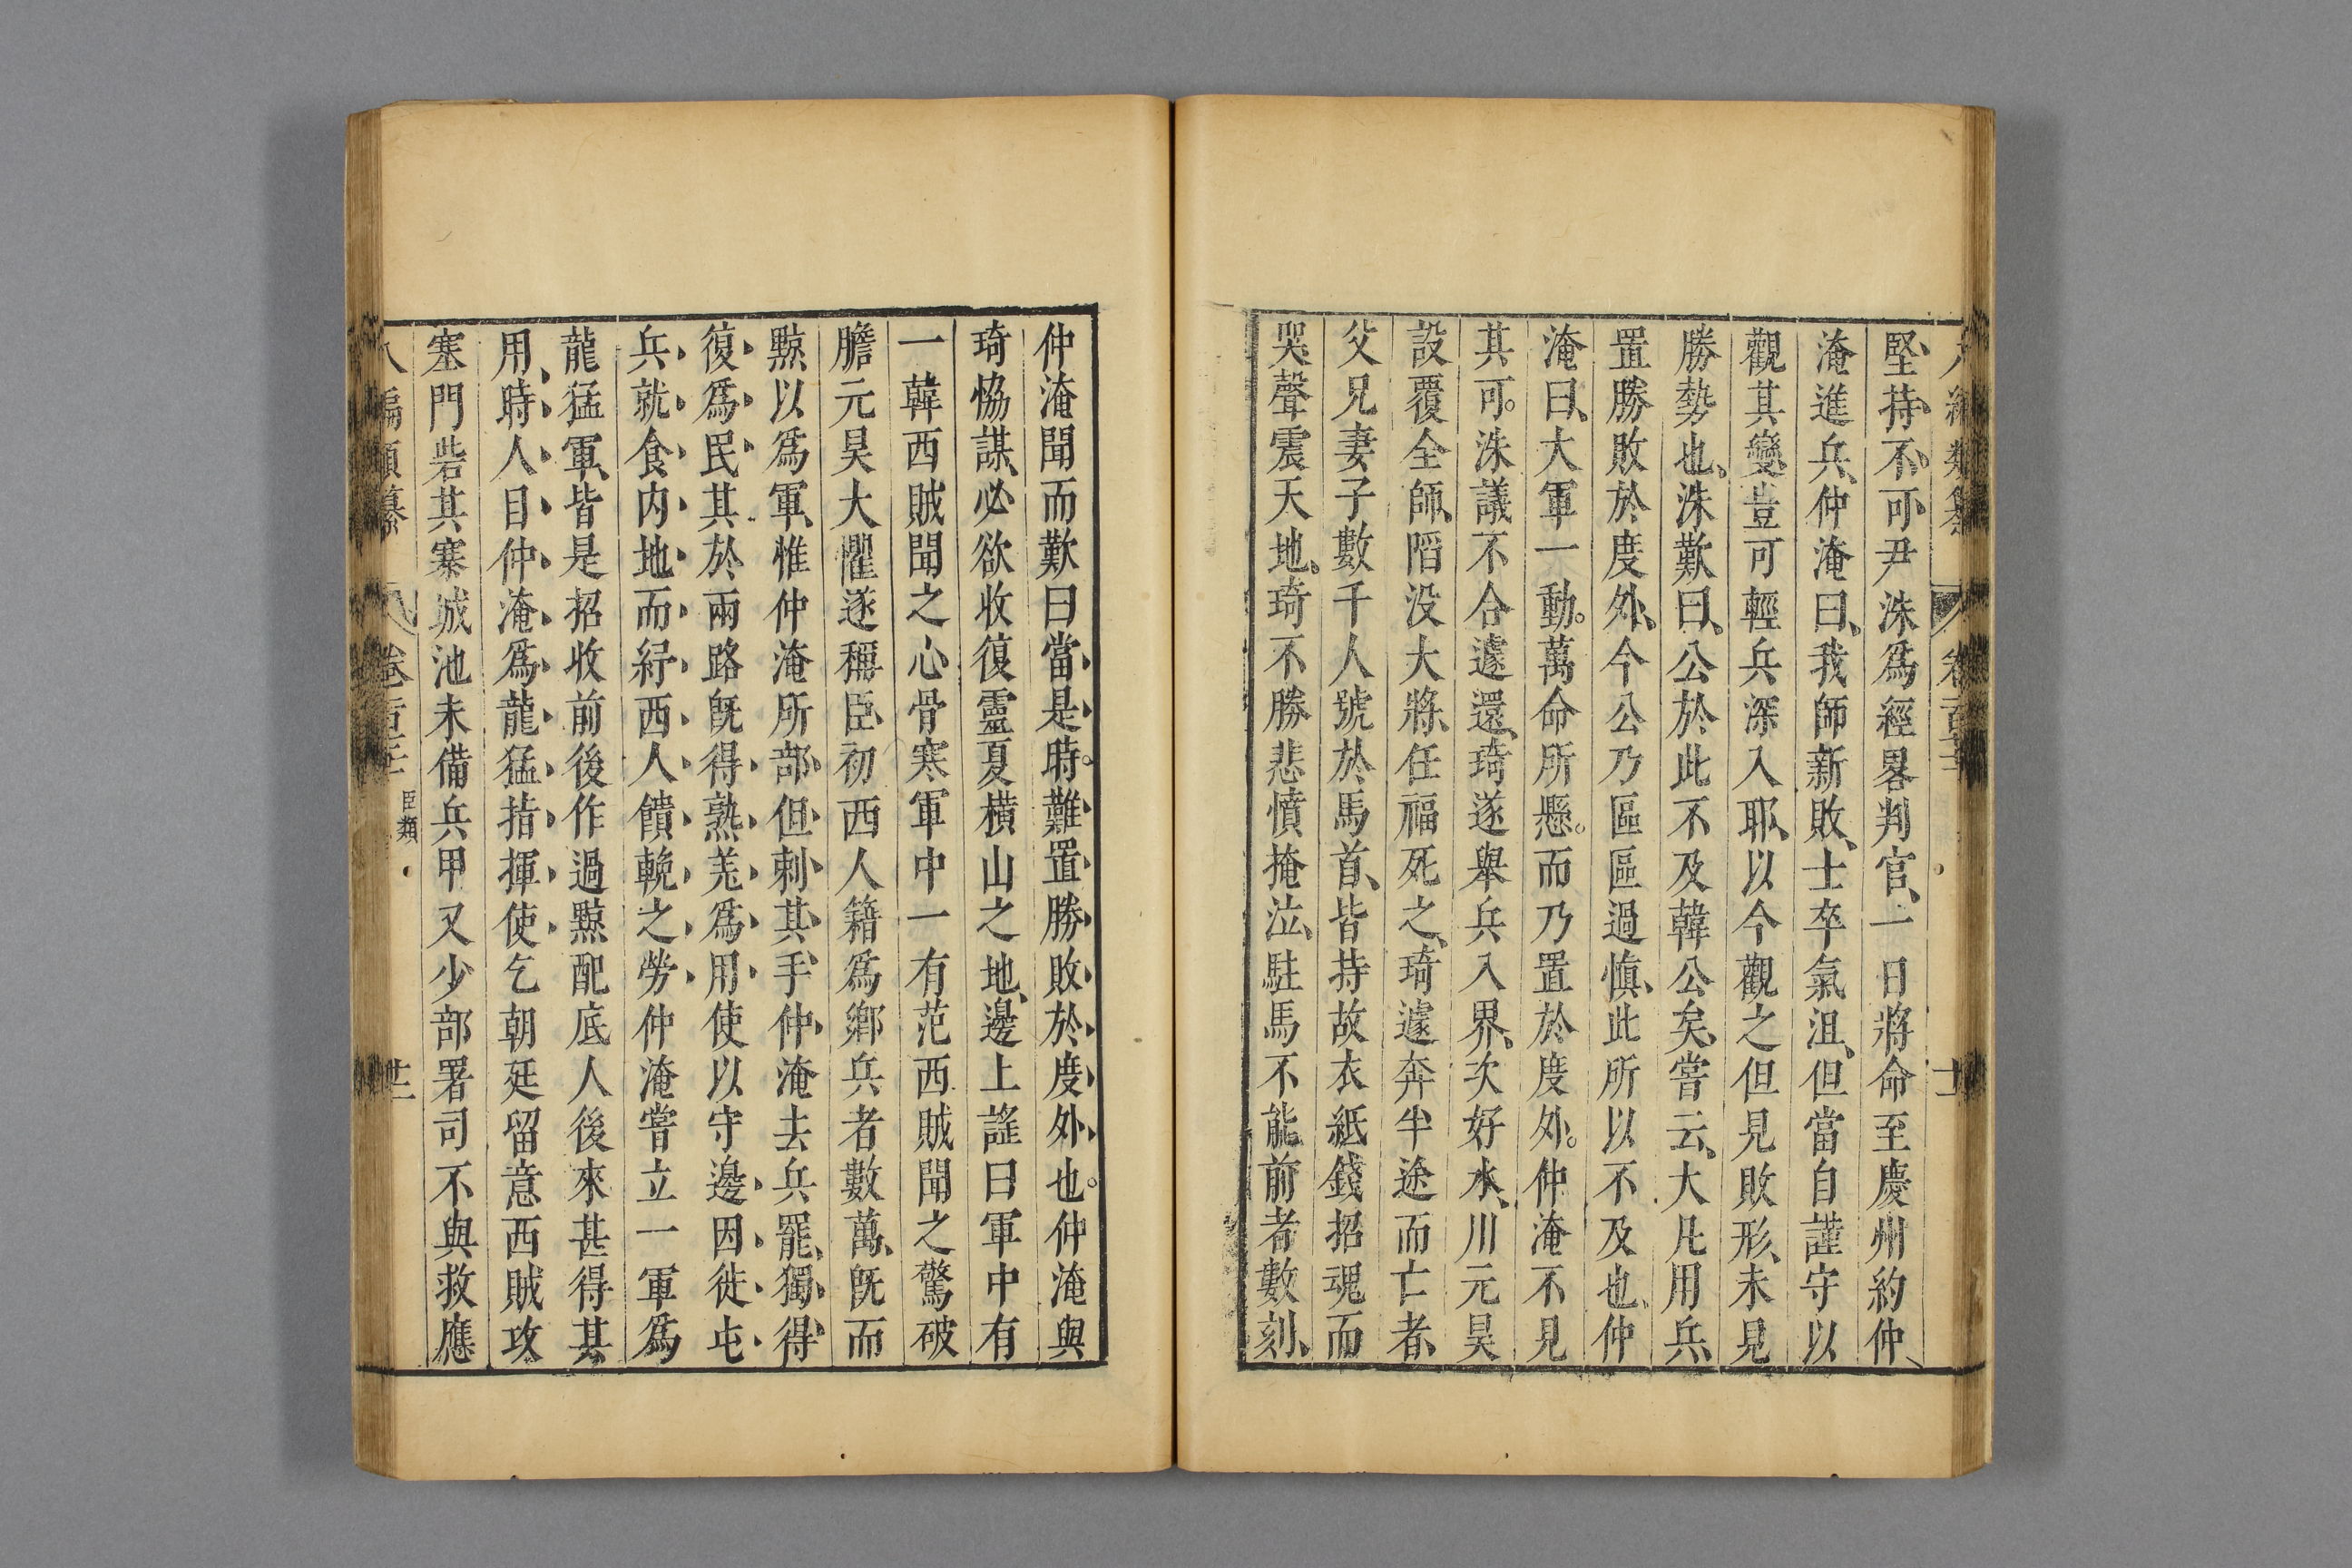 堅持不可尹洙爲經畧判官一日將命至慶州約仲
淹進兵仲淹曰我師新敗士卒氣沮但當自謹守以
觀其變豈可輕兵深入耶以今觀之但見敗形未見
勝勢也洙歎曰公於此不及韓公矣嘗云大凡用兵
置勝敗於度外今公乃區區過慎此所以不及也仲
淹曰大軍一動萬命所懸而乃置於度外仲淹不見
其可洙議不合遽還琦遂舉兵入界次好水川元昊
設覆全師陷没大將任福死之琦遽奔半途而亡者
父兄妻子數千人號於馬首皆持故衣紙錢招魂而
哭聲震天地琦不勝悲憤掩泣駐馬不能前者數刻
仲淹聞而歎曰當是時難置勝敗於度外也仲淹與
琦恊謀必欲收復靈夏橫山之地邊上謡曰軍中有
一韓西賊聞之心骨寒軍中一有范西賊聞之驚破
膽元昊大懼遂稱臣初西人籍爲鄉兵者數萬旣而
黥以爲軍惟仲淹所部但刺其手仲淹去兵罷獨得
復爲民其於兩路旣得熟羌爲用使以守邊因徙屯
兵就食内地而紓西人饋輓之勞仲淹嘗立一軍爲
龍猛軍皆是招收前後作過黥配底人後來甚得其
用時人目仲淹爲龍猛指揮使乞朝廷留意西賊攻
塞門砦其寨城池未備兵甲又少部署司不與救應
八編類纂 卷百 臣類